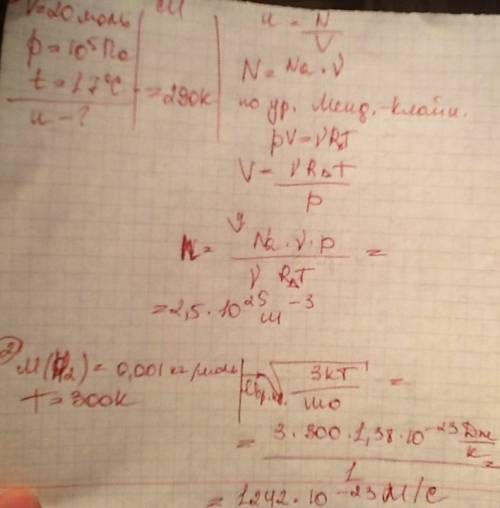 ν=20 моль
p=10⁵ Па
t=17°C =290К
n-?
n = N/V
N = Na·ν
по ур. Менд.-Клайп.
pV=νRT
V = νRT/p
n = Na·ν·p / νRT =
=2,5·10²⁵ м⁻³
② M(H₂)=0,001 кг/моль
T=300К
√(3kT/m₀) =
= 3·300·1,38·10⁻²³ Дж/К / 1 =
= 1242·10⁻²³ м/с